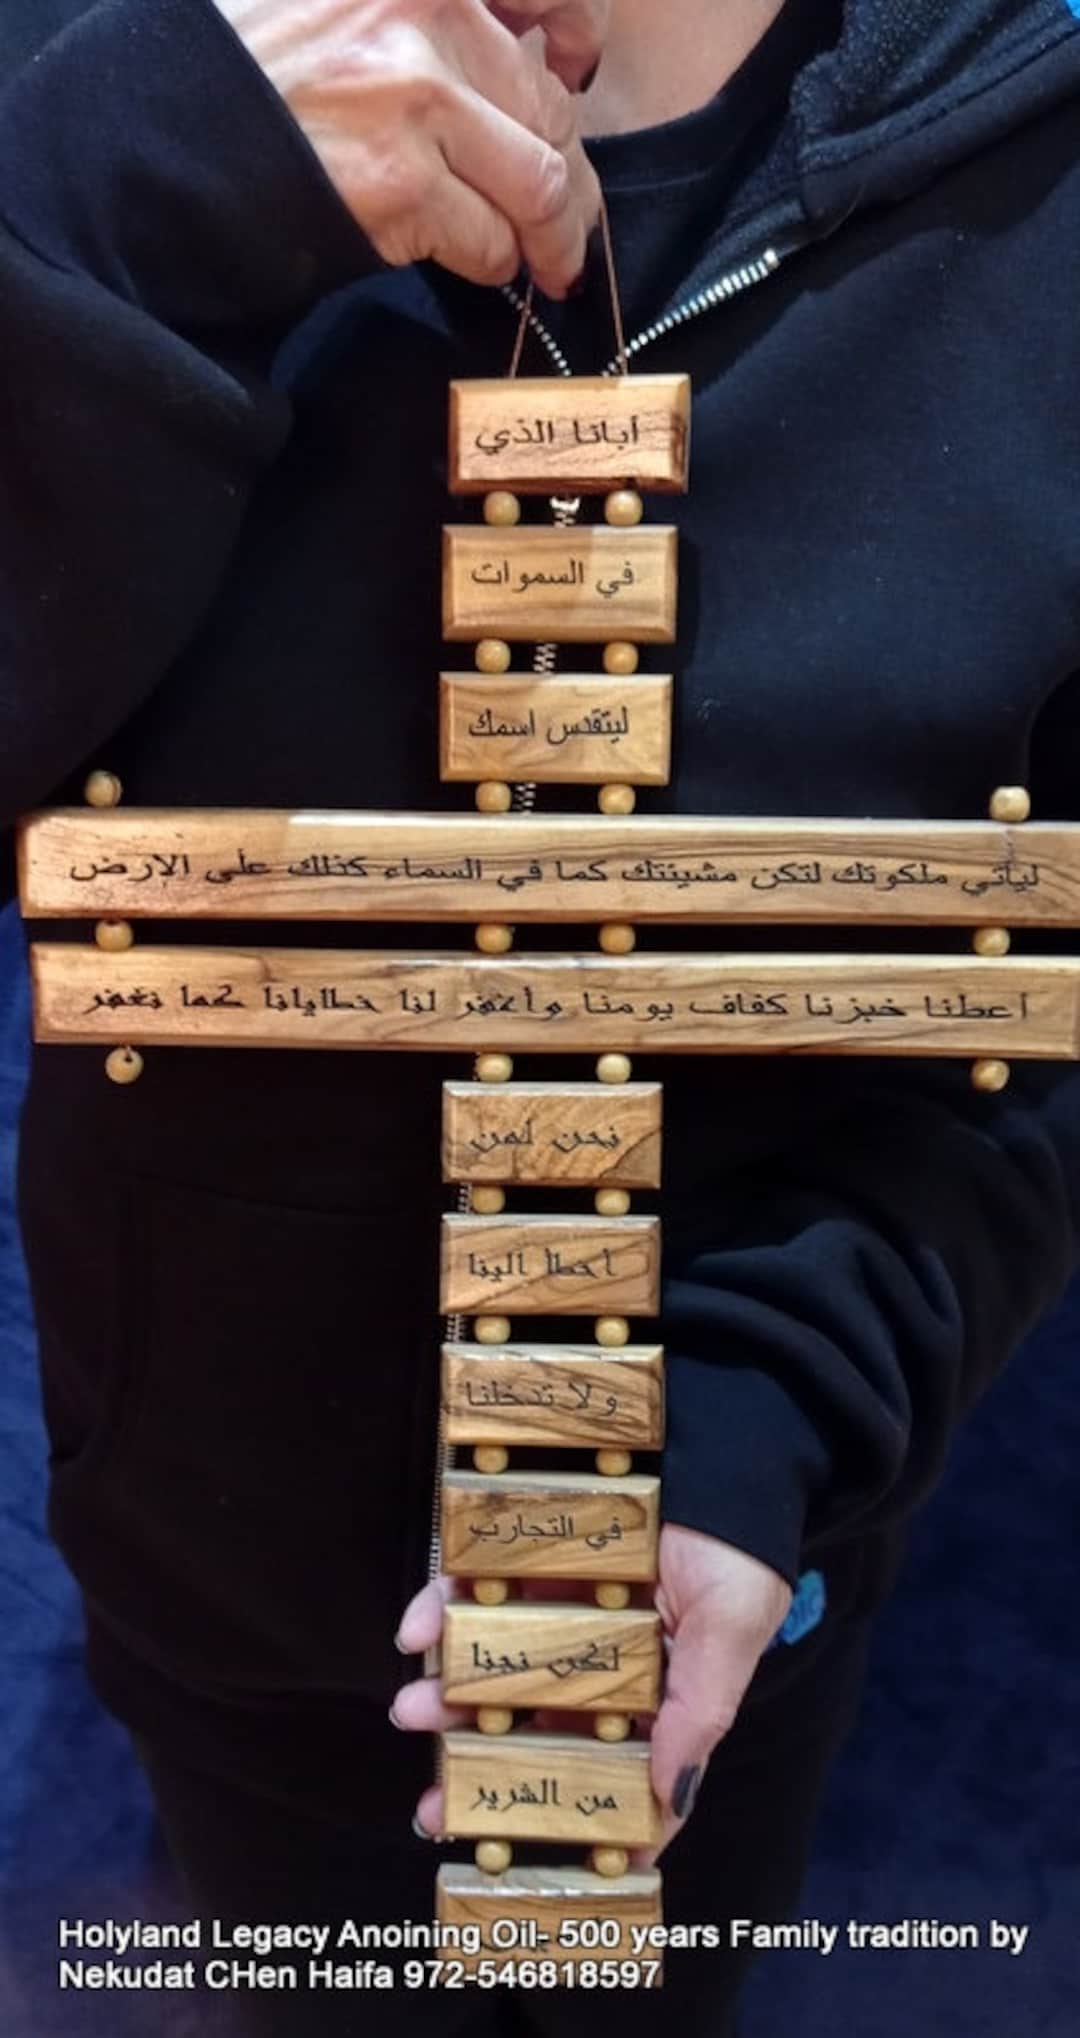 أبانا الذي
في السموات
ليتقدس اسمك
ليأتي ملكوتك لتكن مشيئتك كما في السماء كذلك على الارض
أعطنا خبزنا كفاف يومنا وأغفر لنا خطايانا كما نغفر
نحن لمن
أخطأ الينا
ولا تدخلنا
في التجارب
لكن نجنا
من الشرير
Holyland Legacy Anoining Oil- 500 years Family tradition by
Nekudat CHen Haifa 972-546818597